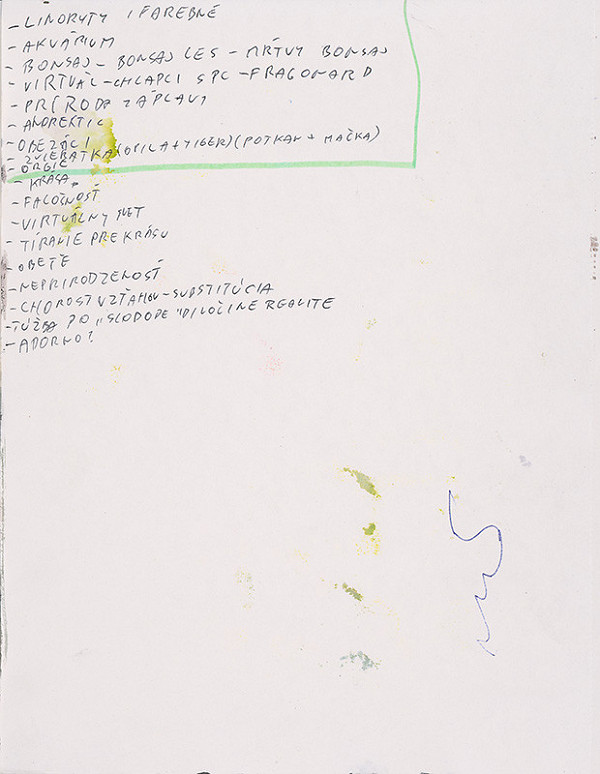 - LINORYTY I FAREBNÉ
- AKVÁRIUM
- BONSAJ - BONSAJ LES - MŔTVY BONSAJ
- VIRTUÁL - CHLAPCI S PC - FRAGONARD
- PRÍRODA ZÁPLAVY
- ANOREKTIC
- OBEZÁCI
- ZVIERATKÁ (OPICA + TIGER) (POTKAN + MAČKA)
- ORGIE
- KRÁSA
- FALOŠNOSŤ
- VIRTUÁLNY SVET
- TÝRANIE PRE KRÁSU
- OBETE
- NEPRIRODZENOSŤ
- CHOROSŤ VZŤAHOV - SUBSTITÚCIA
- TÚŽBA PO "SLOBODE" REALITE
- ADORNO?